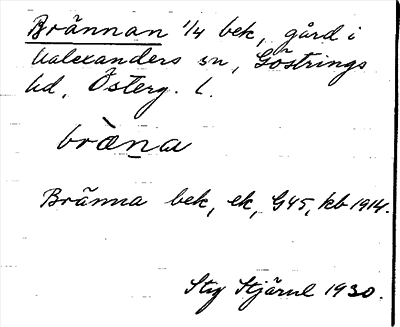 Brännan 1/4 bek, gård i
Valexanders sn, Göstrings
hd, Österg. l.
bræ̀n̲a
Bränna bek, ek, G45, kb 1914.
Stig Stjärnl 1930.